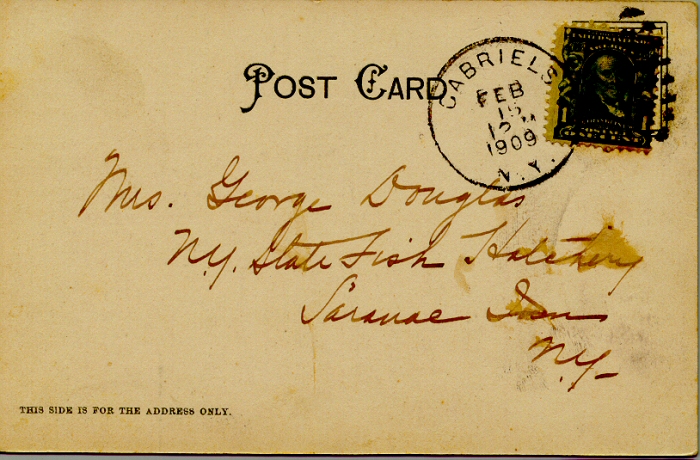 POST CARD
GABRIELS
FEB
15
12 M
1909
N.Y.
Mrs. George Douglas
N.Y. State Fish Hatchery
Saranac Inn
N.Y.
THIS SIDE IS FOR THE ADDRESS ONLY.